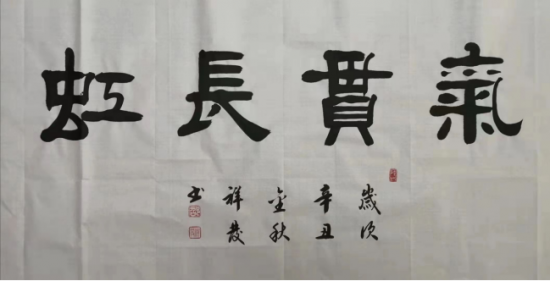 氣貫長虹
歲次
辛丑
金秋
祥發
书